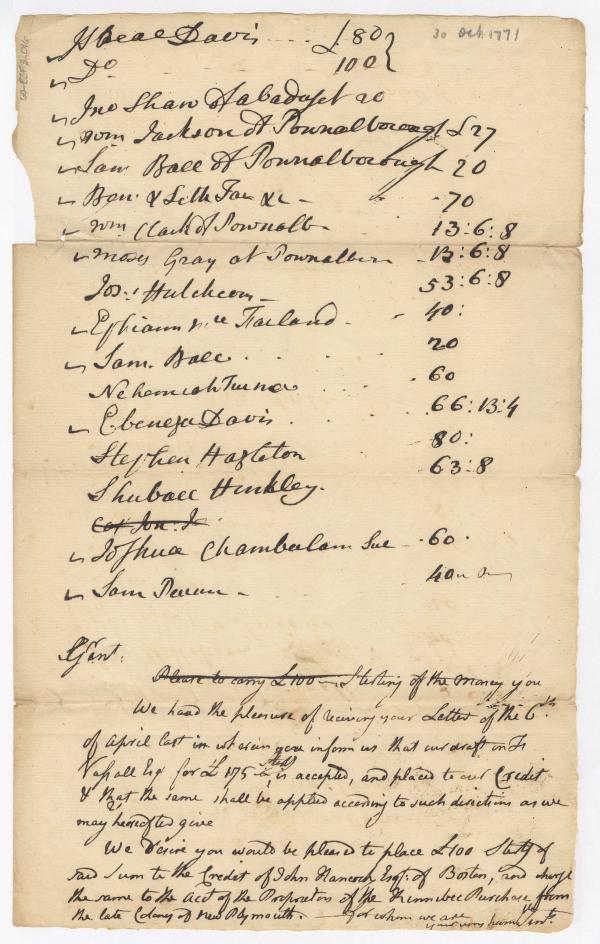 30 Oct. 1771
Davis .... £80
Do 100
Jno Shaw of 20
Wm Jackson of Pownalborough £27
Sam Ball of Pownalborough 20
Ben: & Seth &c - 70
Wm Clark of Pownalb- 13:6:8
Moses Gray of 13:6:8
Jos: 53:6:8
40:
Sam. Ball 20
Nehemiah Turner 60
Ebenezer Davis 66:13:4
Stephen Hazleton 80:
Shubael Hinkley. 63:8
Joshua Chamberlain 60
Sam - 40
Gent:
Please to carry £100 Sterling of the Money you
We had the pleasure of receiving your Letter of the 6th
of April last in wherein you inform us that our draft on
Vassall Esqr for £175 Sterg is accepted, and placed to our Credit
& that the same shall be applied according to such directions as we
may hereafter give
We Desire you would be pleased to place £100 Sterg of
said Sum to the Credit of John Hancock Esqr. of Boston, and charge
the same to the Acct of the Proprietors of the Kennebec Purchase from
the late Colony of New Plymouth. - for whom we are
your very humb Servts.